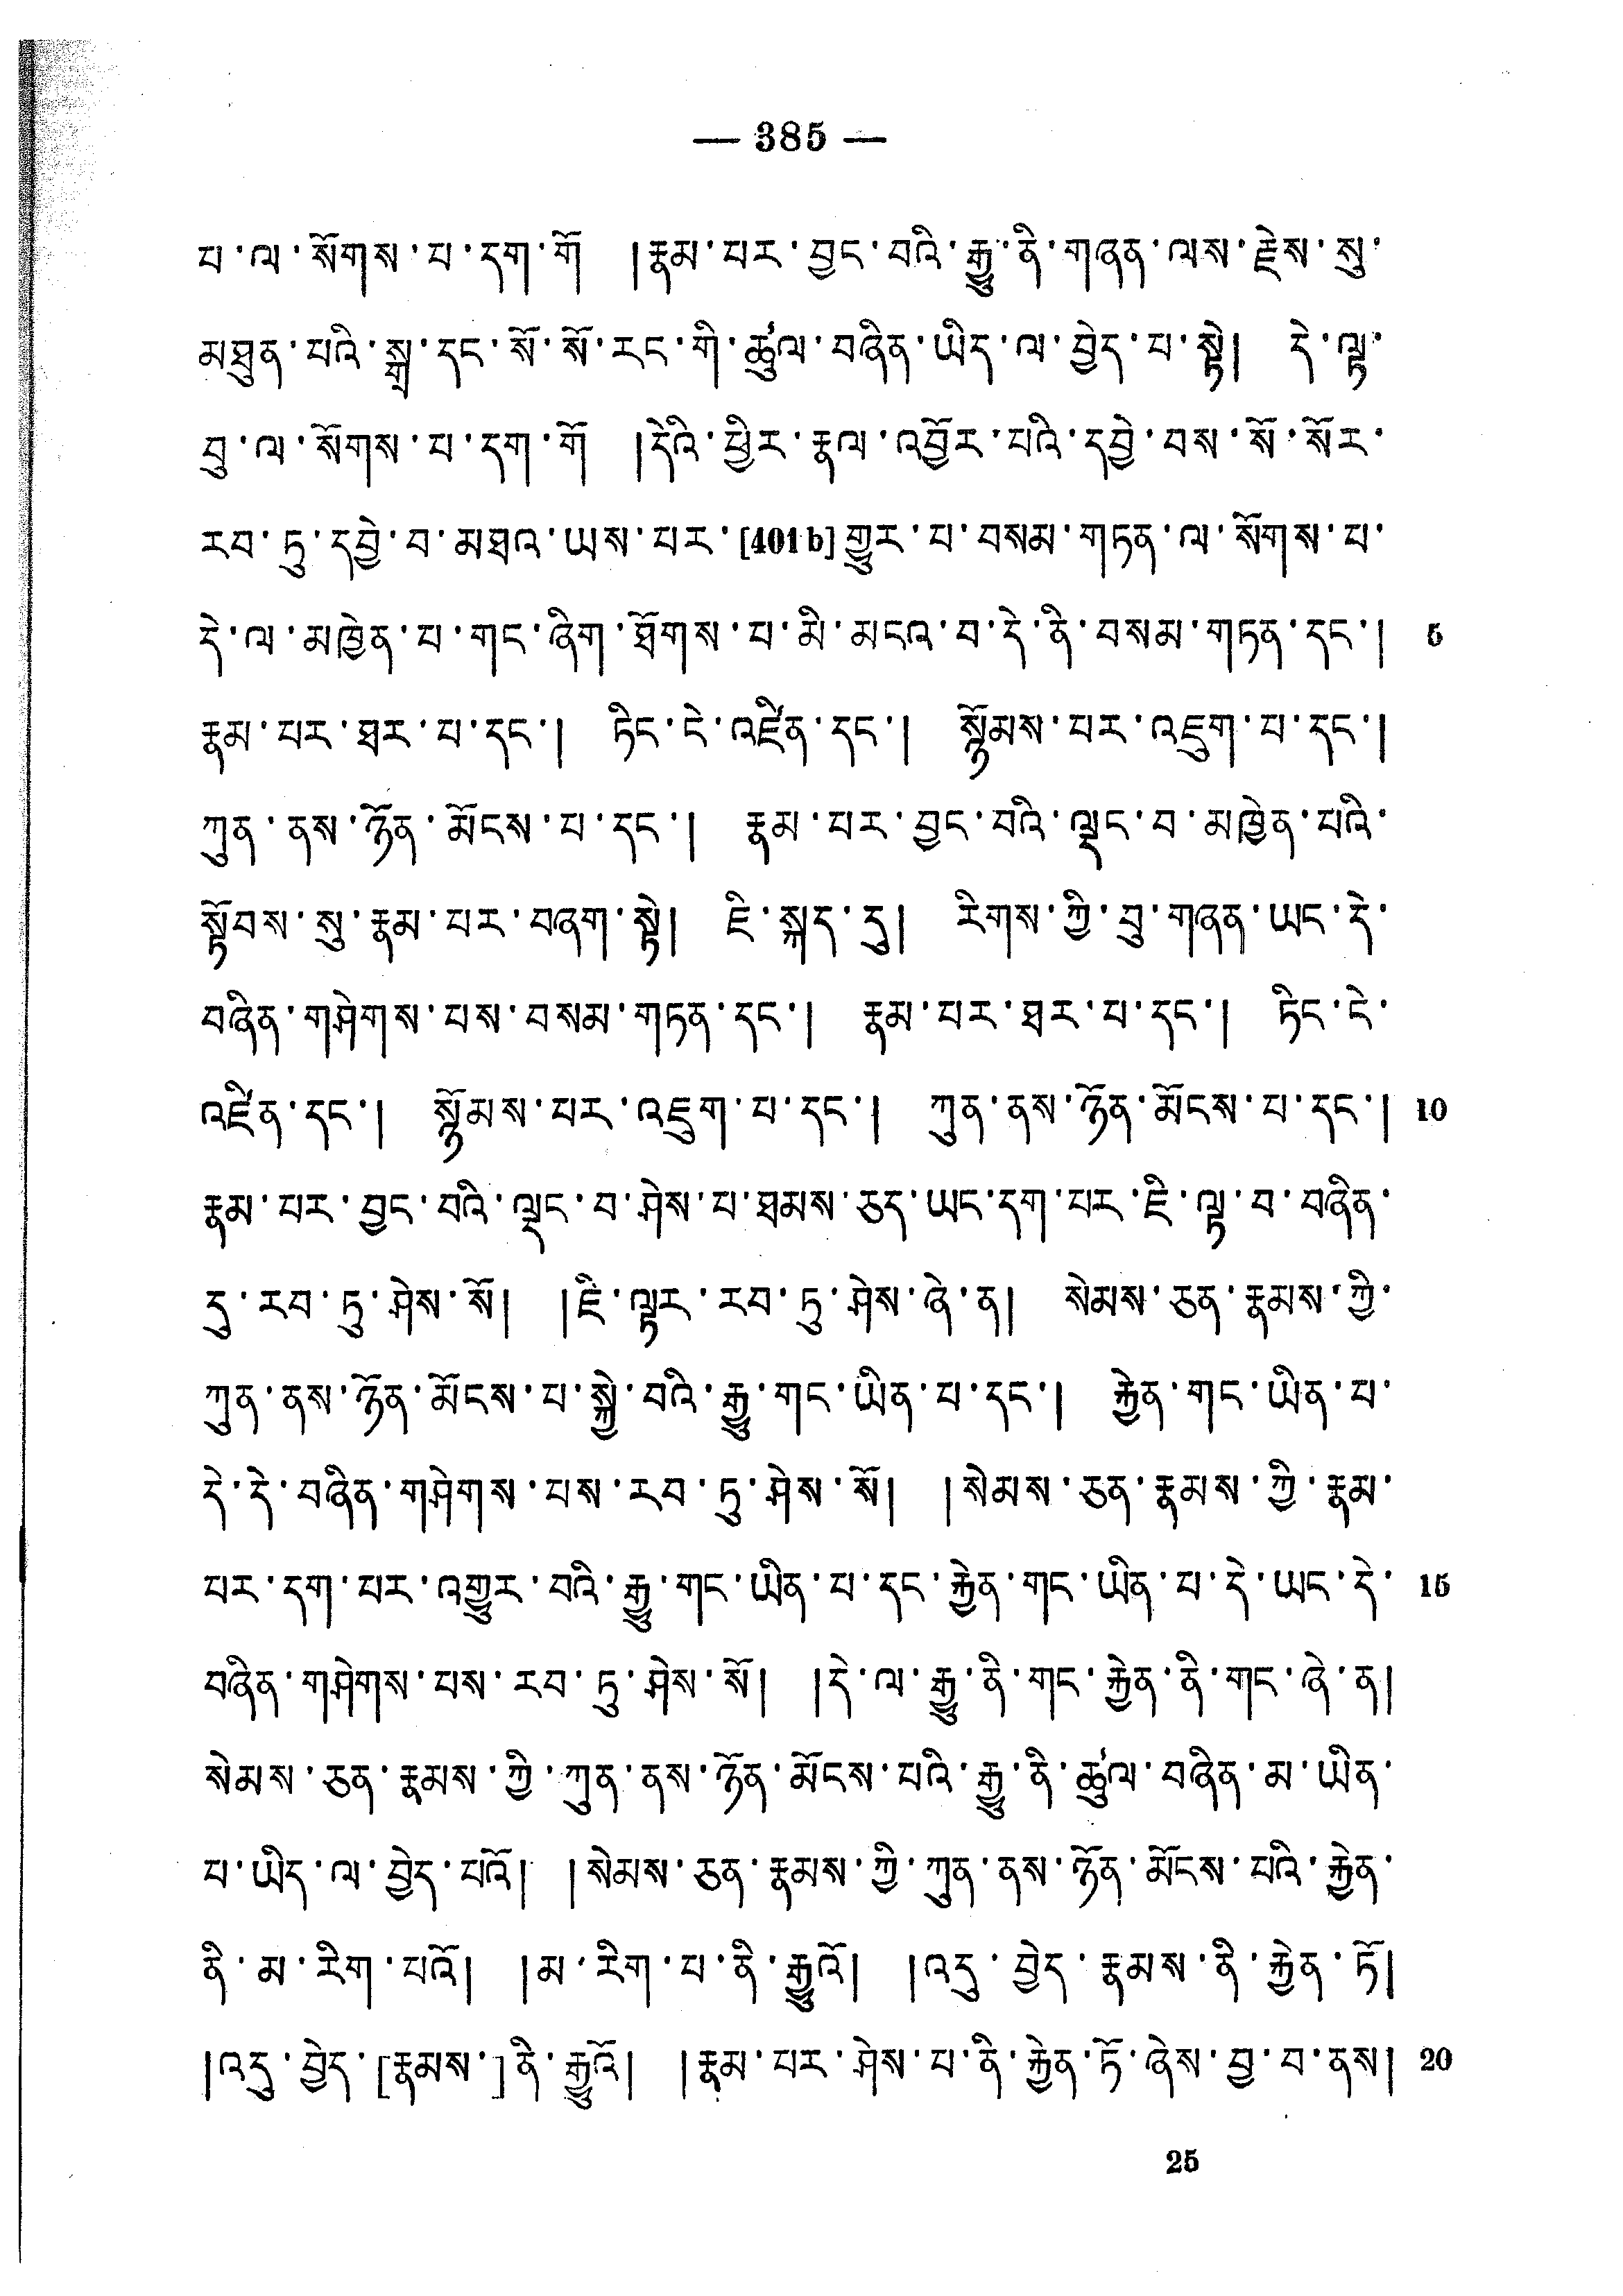 — 385 —
པ་ལ་སོགས་པ་དག་གོ །རྣམ་པར་བྱང་བའི་རྒྱུ་ནི་གཞན་ལས་རྗེས་སུ་
མཐུན་པའི་སྒྲ་དང་སོ་སོ་རང་གི་ཚུལ་བཞིན་ཡིད་ལ་བྱེད་པ་སྟེ། དེ་ལྟ་
བུ་ལ་སོགས་པ་དག་གོ །དེའི་ཕྱིར་རྣལ་འབྱོར་པའི་དབྱེ་བས་སོ་སོར་
རབ་ཏུ་དབྱེ་བ་མཐའ་ཡས་པར་[401b]གྱུར་པ་བསམ་གཏན་ལ་སོགས་པ་
དེ་ལ་མཁྱེན་པ་གང་ཞིག་ཐོགས་པ་མི་མངའ་བ་དེ་ནི་བསམ་གཏན་དང་། 5
རྣམ་པར་ཐར་པ་དང་། ཏིང་ངེ་འཛིན་དང་། སྙོམས་པར་འཇུག་པ་དང་།
ཀུན་ནས་ཉོན་མོངས་པ་དང་། རྣམ་པར་བྱང་བའི་ལྡང་བ་མཁྱེན་པའི་
སྟོབས་སུ་རྣམ་པར་བཞག་སྟེ། ཇི་སྐད་དུ། རིགས་ཀྱི་བུ་གཞན་ཡང་དེ་
བཞིན་གཤེགས་པས་བསམ་གཏན་དང་། རྣམ་པར་ཐར་པ་དང་། ཏིང་ངེ་
འཛིན་དང་། སྙོམས་པར་འཇུག་པ་དང་། ཀུན་ནས་ཉོན་མོངས་པ་དང་། 10
རྣམ་པར་བྱང་བའི་ལྡང་བ་ཤེས་པ་ཐམས་ཅད་ཡང་དག་པར་ཇི་ལྟ་བ་བཞིན་
དུ་རབ་ཏུ་ཤེས་སོ། །ཇི་ལྟར་རབ་ཏུ་ཤེས་ཞེ་ན། སེམས་ཅན་རྣམས་ཀྱི་
ཀུན་ནས་ཉོན་མོངས་པ་སྐྱེ་བའི་རྒྱུ་གང་ཡིན་པ་དང་། རྐྱེན་གང་ཡིན་པ་
དེ་དེ་བཞིན་གཤེགས་པས་རབ་ཏུ་ཤེས་སོ། །སེམས་ཅན་རྣམས་ཀྱི་རྣམ་
པར་དག་པར་འགྱུར་བའི་རྒྱུ་གང་ཡིན་པ་དང་རྐྱེན་གང་ཡིན་པ་དེ་ཡང་དེ་ 15
བཞིན་གཤེགས་པས་རབ་ཏུ་ཤེས་སོ། །དེ་ལ་རྒྱུ་ནི་གང་རྐྱེན་ནི་གང་ཞེ་ན།
སེམས་ཅན་རྣམས་ཀྱི་ཀུན་ནས་ཉོན་མོངས་པའི་རྒྱུ་ནི་ཚུལ་བཞིན་མ་ཡིན་
པ་ཡིད་ལ་བྱེད་པའོ། །སེམས་ཅན་རྣམས་ཀྱི་ཀུན་ནས་ཉོན་མོངས་པའི་རྐྱེན་
ནི་མ་རིག་པའོ། །མ་རིག་པ་ནི་རྒྱུའོ། །འདུ་བྱེད་རྣམས་ནི་རྐྱེན་ཏོ།
།འདུ་བྱེད་[རྣམས་]ནི་རྒྱུའོ། །རྣམ་པར་ཤེས་པ་ནི་རྐྱེན་ཏོ་ཞེས་བྱ་བ་ནས། 20
25